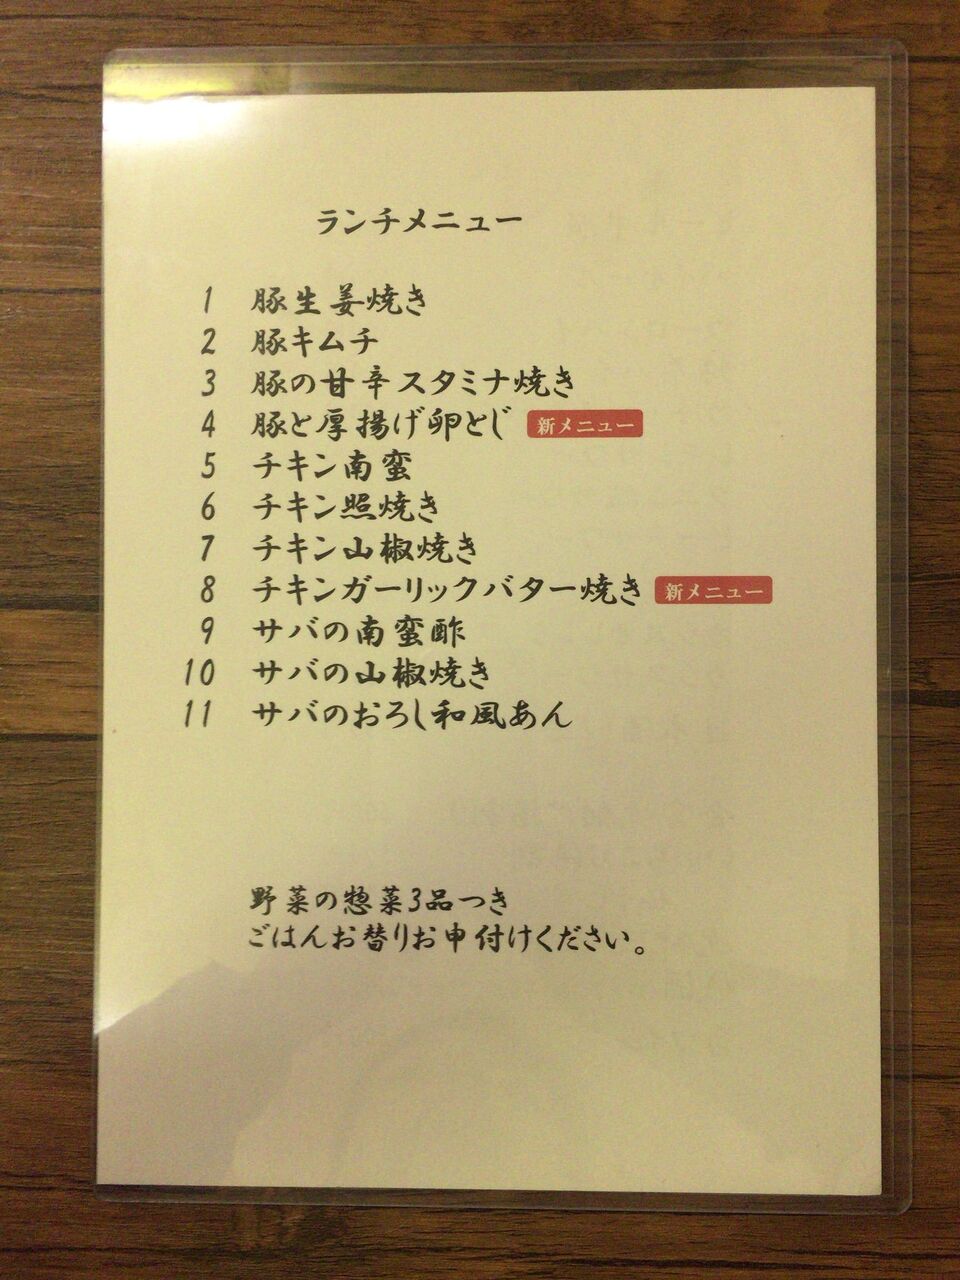 ランチメニュー
1 豚生姜焼き
2 豚キムチ
3 豚の甘辛スタミナ焼き
4 豚と厚揚げ卵とじ 新メニュー
5 チキン南蛮
6 チキン照焼き
7 チキン山椒焼き
8 チキンガーリックバター焼き 新メニュー
9 サバの南蛮酢
10 サバの山椒焼き
11 サバのおろし和風あん
野菜の惣菜3品つき
ごはんお替りお申付けください。